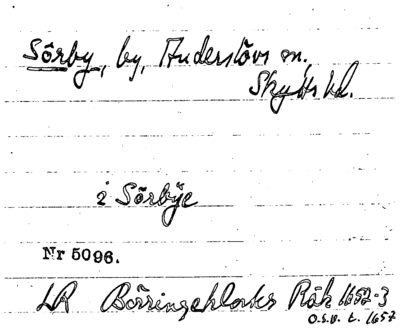 Sörby, by, Anderslövs sn.
Skytts hd.
i Sörbÿe
Nr 5096.
LR Börringeklosters Räk 1652-3
o.s.v. t. 1657